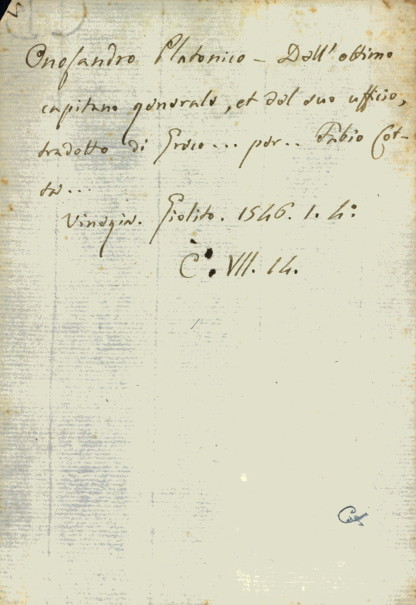 Onosandro Platonico - Dell' obtimo
capitano generale, et del suo ufficio,
tradotto di Greco... per.. Fabio Cot-
ta...
Vinegia. Giolito. 1546. 1. 4:
C. VII. 14.